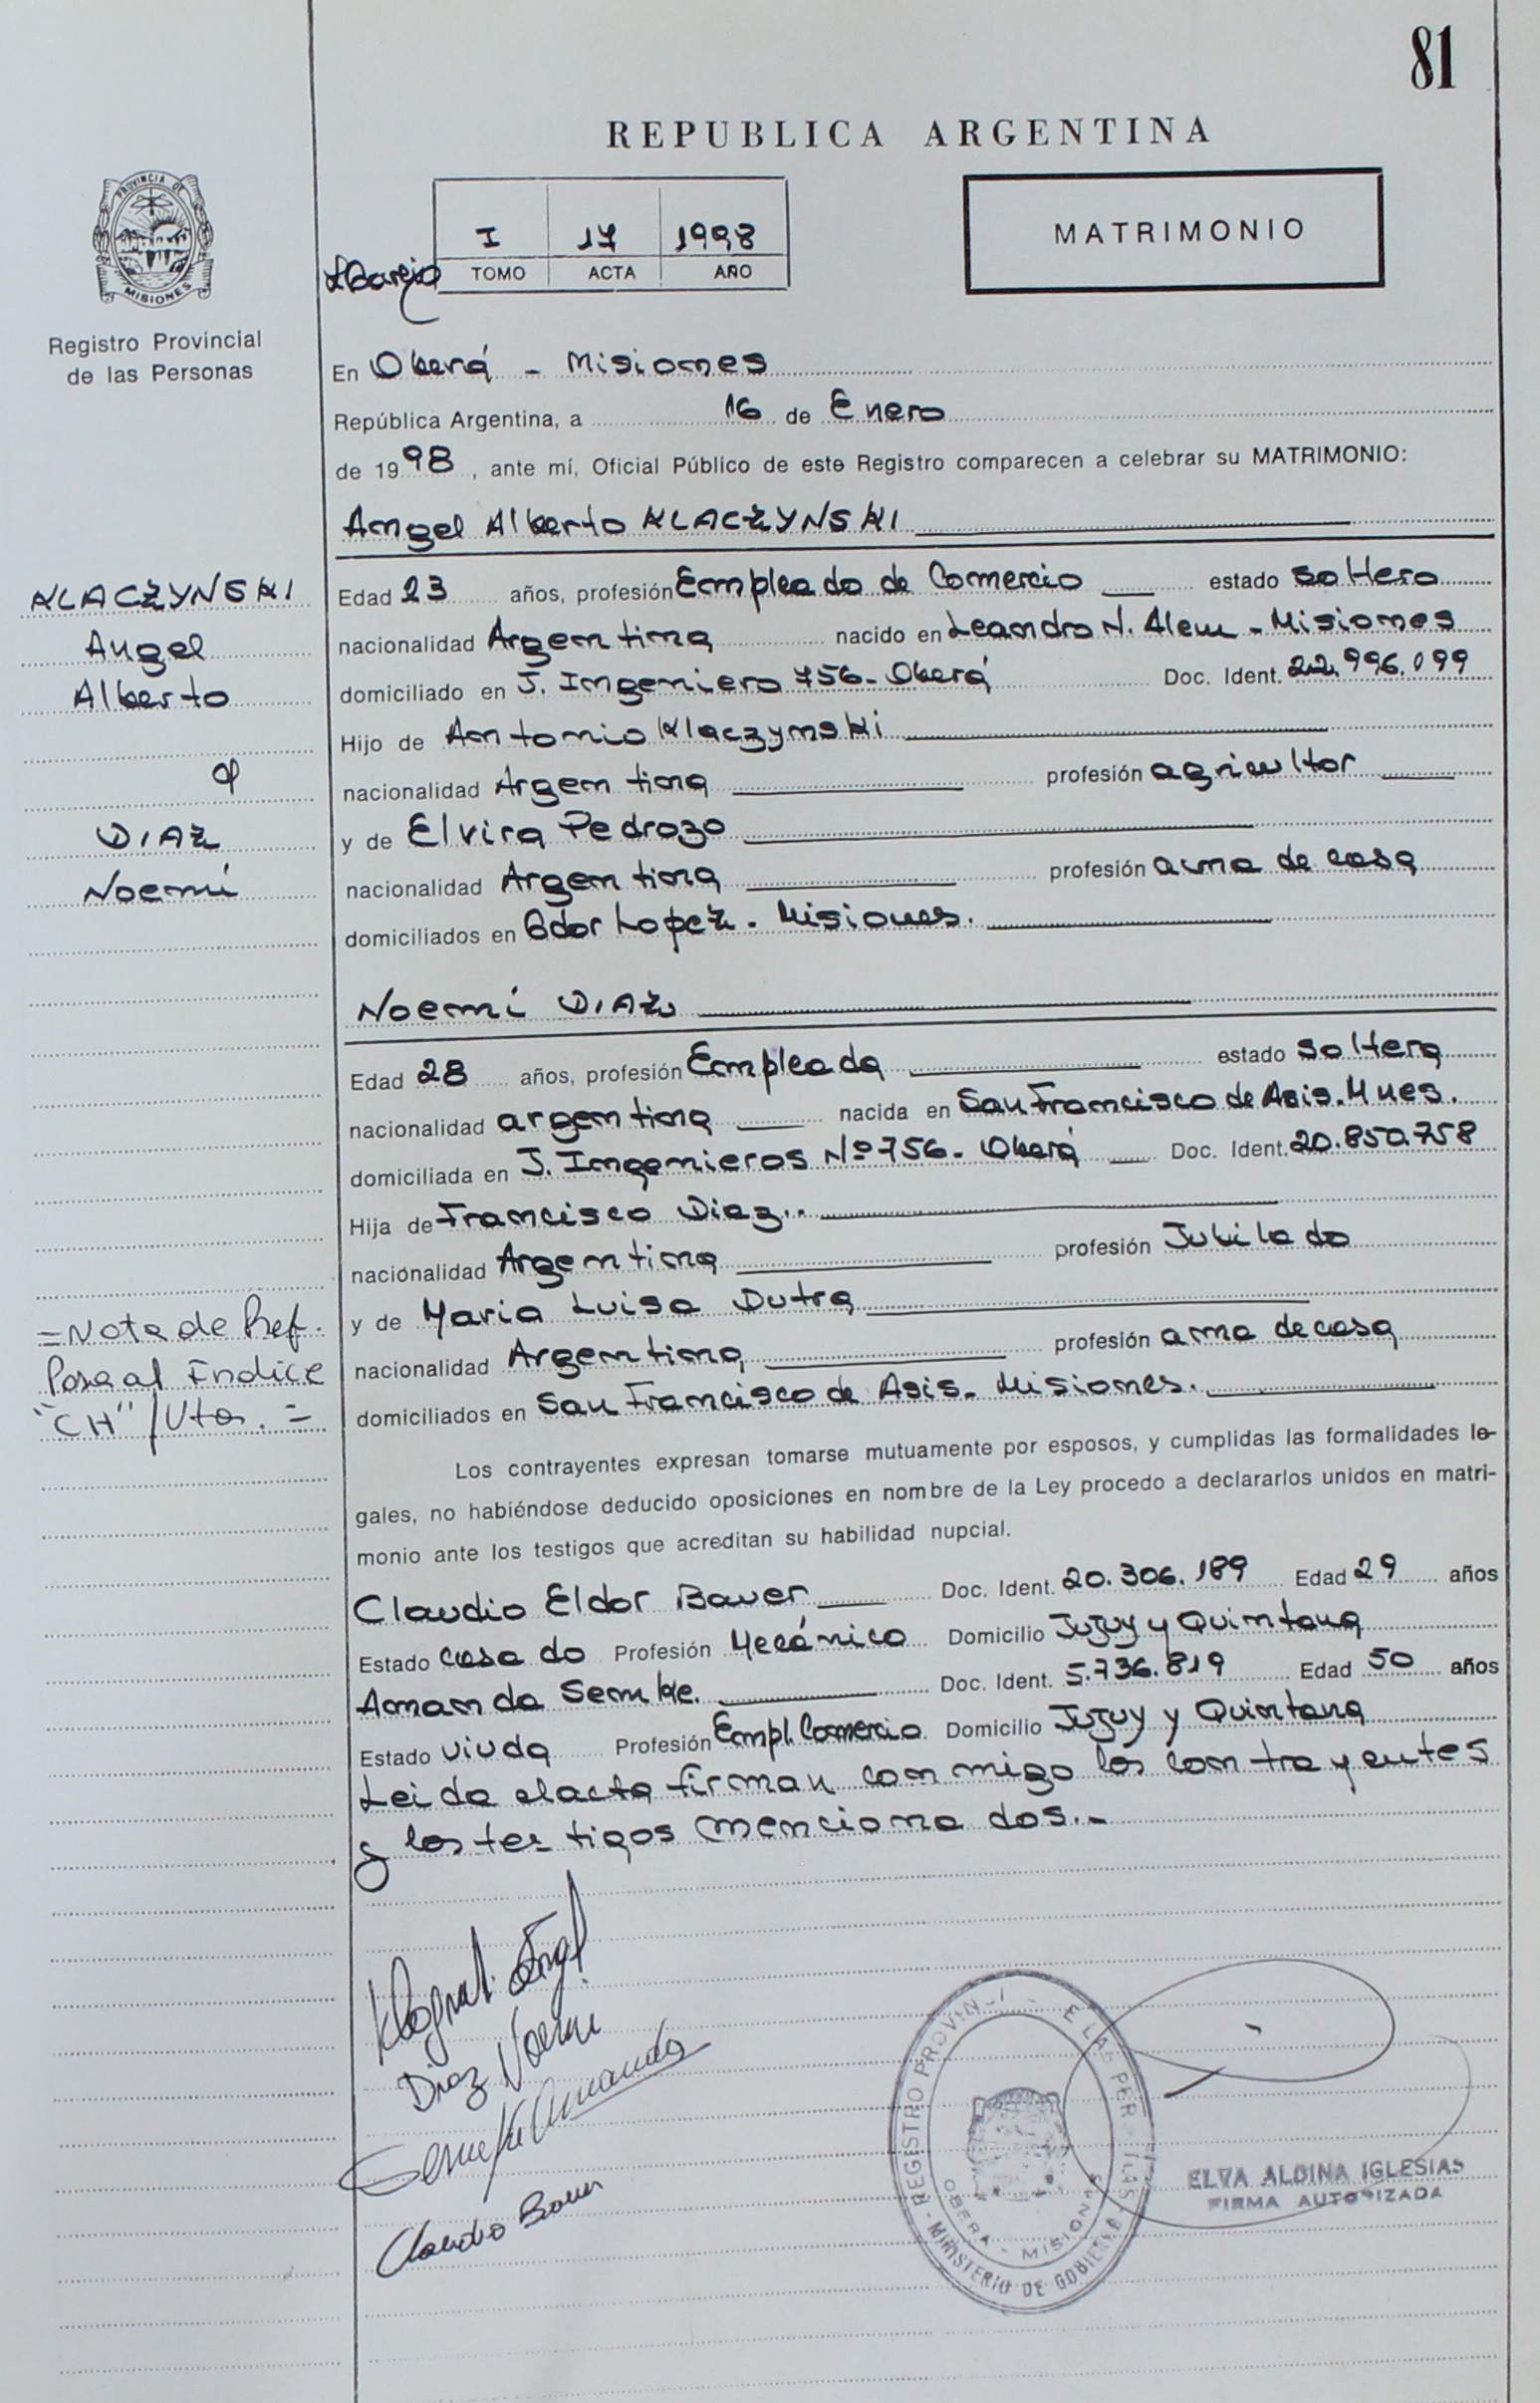 81
REPUBLICA ARGENTINA
PROVINCIA DE
MISIONES
Registro Provincial
de las Personas
I 17 1998
TOMO ACTA AÑO
MATRIMONIO
En Oberá - Misiones
República Argentina, a 16 de Enero
de 1998, ante mí, Oficial Público de este Registro comparecen a celebrar su MATRIMONIO:
Angel Alberto KLACZYNSKI
KLACZYNSKI
Angel
Alberto
DIAZ
Noemí
Edad 23 años, profesión Empleado de Comercio estado soltero
nacionalidad Argentina nacido en Leandro N. Alem - Misiones
domiciliado en J. Ingeniero 756 - Oberá Doc. Ident. 22.996.099
Hijo de Antonio Klaczynski
nacionalidad Argentina profesión agricultor
y de Elvira Pedrozo
nacionalidad Argentina profesión ama de casa
domiciliados en Gdor Lopez - Misiones.
Noemí DIAZ
Edad 28 años, profesión Empleada estado soltera
nacionalidad argentina nacida en San Francisco de Asis. Mnes.
domiciliada en J. Ingenieros Nº 756 - Oberá Doc. Ident. 20.850.758
Hija de Francisco Diaz..
nacionalidad Argentina profesión Jubilado
y de Maria Luisa Dutra
nacionalidad Argentina profesión ama de casa
domiciliados en San Francisco de Asis - Misiones.
=Nota de Ref.
Pasa al Indice
"CH" /Vtos. =
Los contrayentes expresan tomarse mutuamente por esposos, y cumplidas las formalidades le-
gales, no habiéndose deducido oposiciones en nombre de la Ley procedo a declararlos unidos en matri-
monio ante los testigos que acreditan su habilidad nupcial.
Claudio Eldor Bauer Doc. Ident. 20.306.189 Edad 29 años
Estado casado Profesión Mecánico Domicilio Jujuy y Quintana
Amanda Semke. Doc. Ident. 5.736.819 Edad 50 años
Estado viuda Profesión Empl. Comercio Domicilio Jujuy y Quintana
Leida el acta firman conmigo los contrayentes
y los testigos mencionados.-
Diaz Noemi
Amanda
Claudio Bauer
REGISTRO PROVIN E LAS PER
OBERA - MISIONES
MINISTERIO DE GOBIERNO
ELVA ALDINA IGLESIAS
FIRMA AUTORIZADA